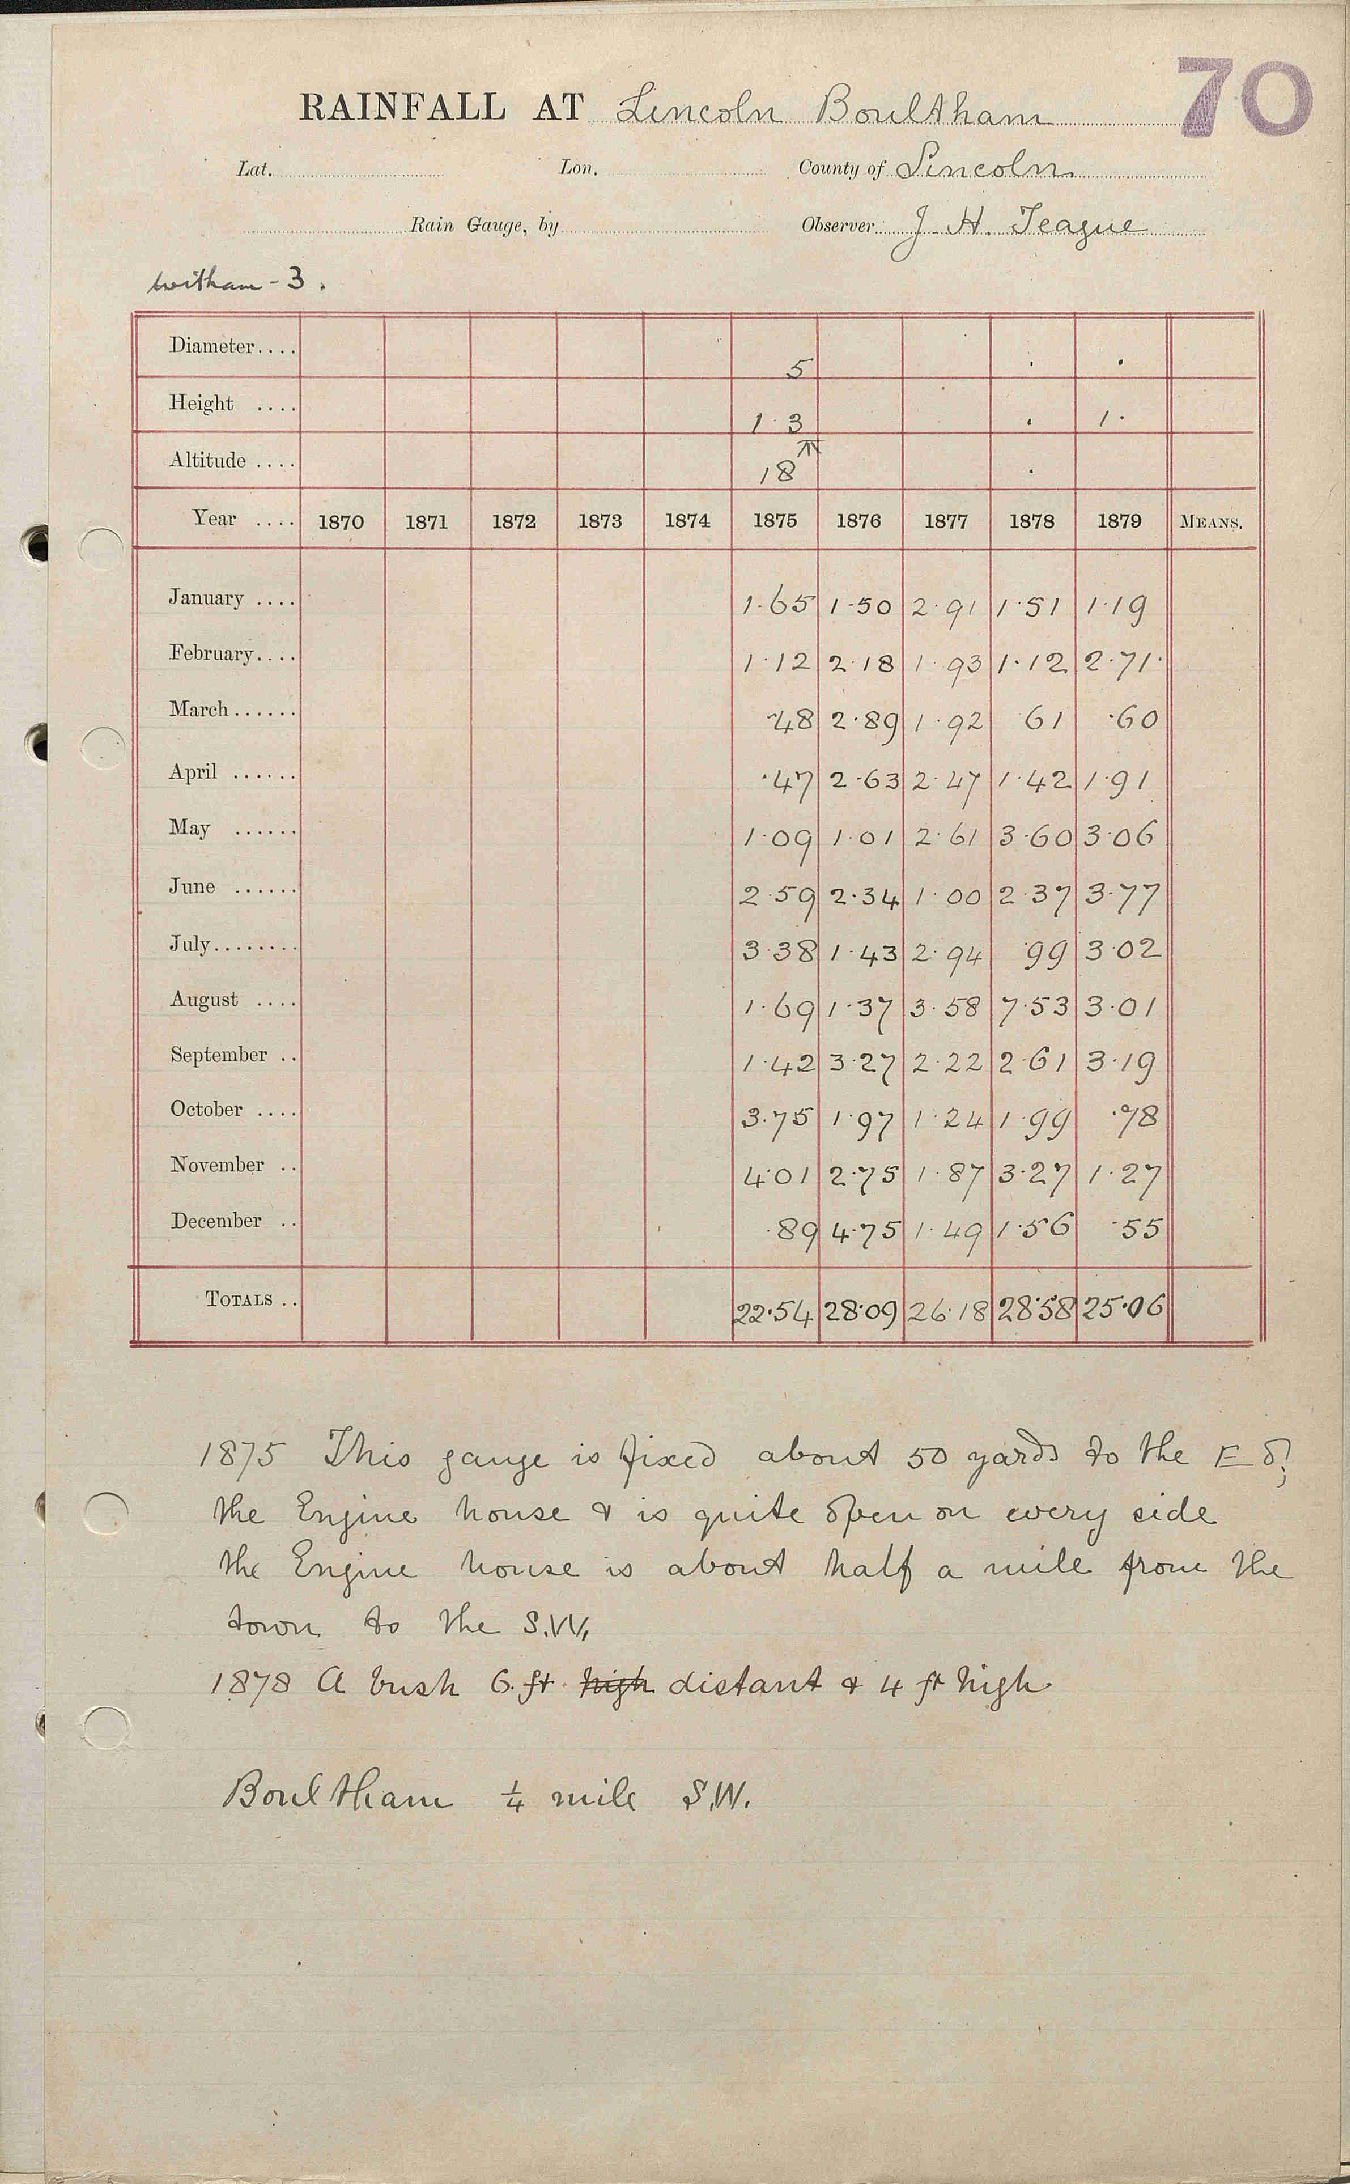 70
RAINFALL AT Lincoln Boultham
Lat. Lon. County of Lincoln
Rain Gauge, by Observer J. H. Teague
Witham - 3.
Diameter.... 5 . . .
Height .... 1·3 . 1·
Altitude .... 18 .
Year .... 1870 1871 1872 1873 1874 1875 1876 1877 1878 1879 MEANS.
January .... 1·65 1·50 2·91 1·51 1·19
February.... 1·12 2·18 1·93 1·12 2·71
March...... ·48 2·89 1·92 ·61 ·60
April ...... ·47 2·63 2·47 1·42 1·91
May ...... 1·09 1·01 2·61 3·60 3·06
June ...... 2·59 2·34 1·00 2·37 3·77
July........ 3·38 1·43 2·94 ·99 3·02
August .... 1·69 1·37 3·58 7·53 3·01
September .. 1·42 3·27 2·22 2·61 3·19
October .... 3·75 1·97 1·24 1·99 ·78
November .. 4·01 2·75 1·87 3·27 1·27
December .. ·89 4·75 1·49 1·56 ·55
TOTALS .. 22·54 28·09 26·18 28·58 25·06
1875 This gauge is fixed about 50 yards to the E of
the Engine house & is quite open on every side
the Engine house is about half a mile from the
town to the S.W.
1878 A bush 6 ft high distant & 4 ft high
Boultham ¼ mile S.W.